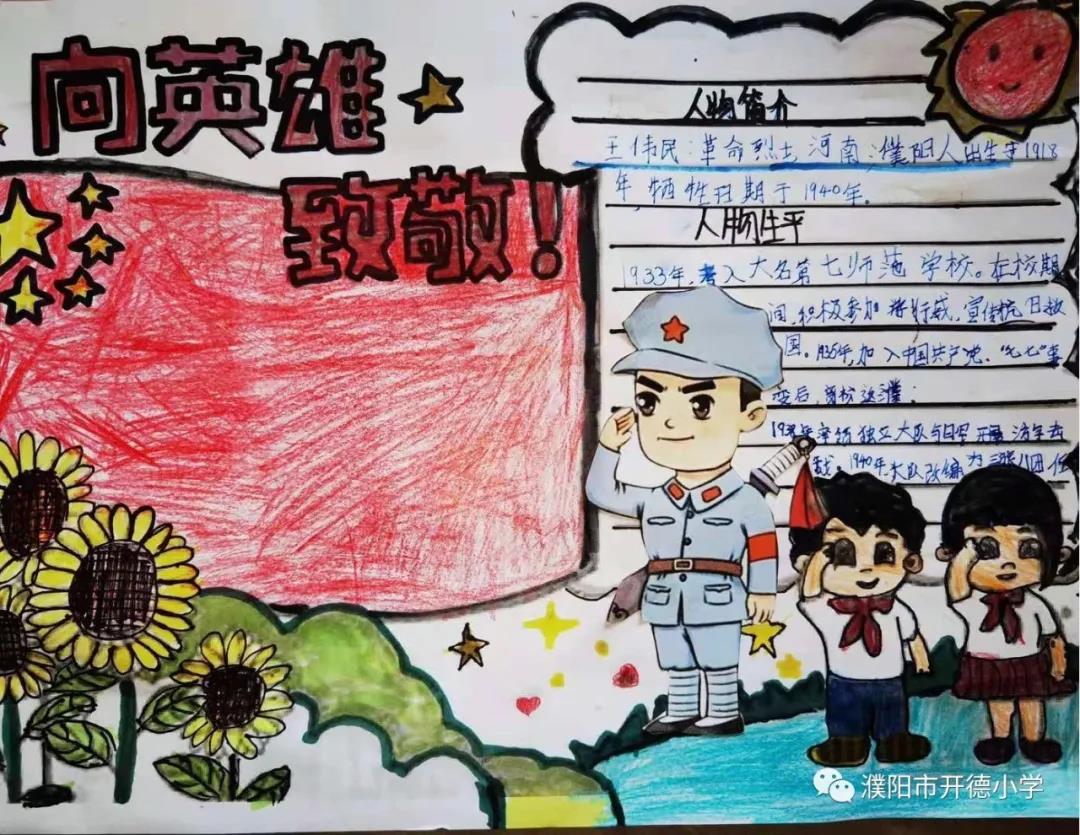 向英雄
致敬!
人物简介
王伟民:革命烈士,河南濮阳人出生于1918
年,牺牲日期于1940年。
人物生平
1933年,考入大名第七师范学校。在校期
间,积极参加游行示威,宣传抗日救
国。1935年,加入中国共产党,"七七"事
变后,离校返濮;
1938年率领独立大队与日军开展游击
战。1940年,大队改编为三旅八团任
濮阳市开德小学